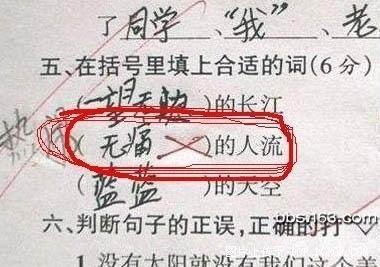 了同学、“我”、老
五、在括号里填上合适的词(6分)
(一望无际)的长江
(无痛)的人流
(蓝蓝)的天空
bbs.163.com
六、判断句子的正误,正确的打
1.没有太阳就没有我们这个美